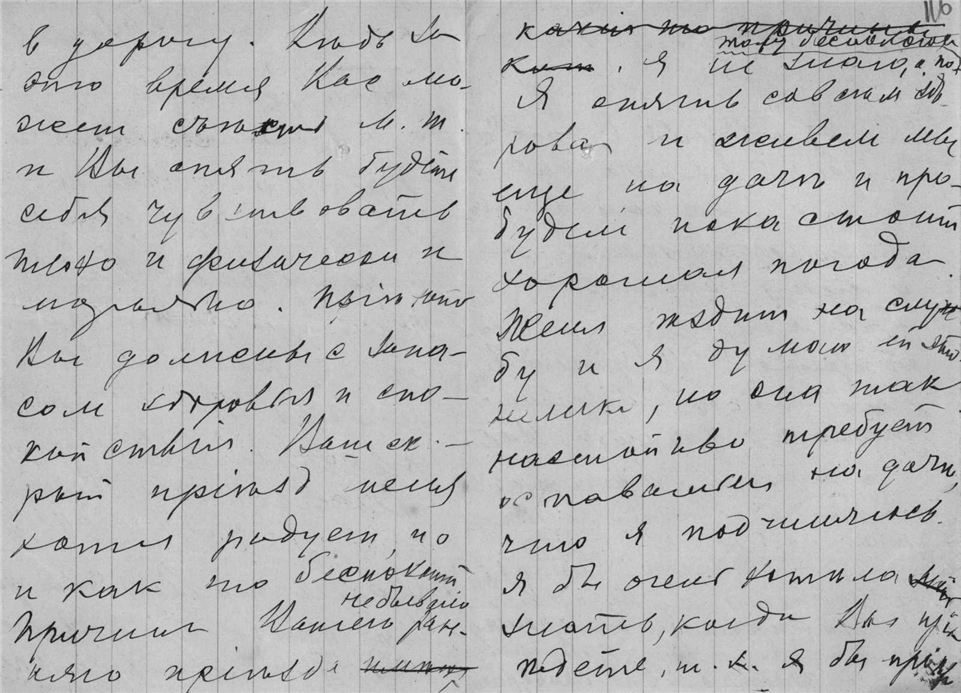 в дорогу. Ведь за
это время Вас мо-
жет м. т.
и Вы опять будете
себя чувствовать
плохо и физически и
морально. Пріехать
Вы должны с запа-
сом здоровья и спо-
койствія. Ваш ск-
рый пріездъ меня
хотя радует, но
и как то беспокоит
небывало
Причин Вашего ран-
няго пріезда
116
какия то причины
того беспокойства
я не знаю, а
Я опять совсем здо-
рова и живем мы
еще на дачѣ и про-
будем пока стоит
хорошая погода.
Женя ѣздит на служ-
бу и я думаю ей это
тяжело, но она так
настойчиво требует
оставаться на дачѣ,
что я подчиняюсь.
Я бы очень хотела
знать, когда Вы прі-
ѣдете, т. к. я бы